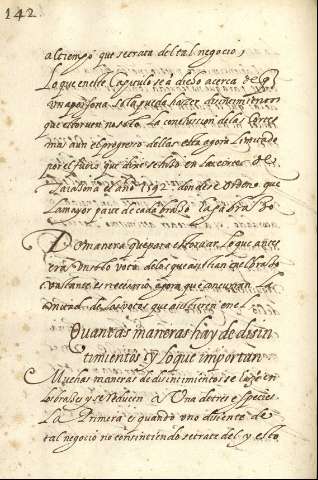 142
al tiempo que se trata del tal negocio,
Lo que en este Capitulo se a dicho acerca de q
vna persona sola pueda hazer disentimientos
que estoruen no solo la conclussion de las Cortes
mas aun el progreso dellas esta agora limitado
por el fuero que dixe se hizo en las de
Taraçona el año 1592 donde se ordeno que
la mayor parte de cada braço haga braço
De manera que para estoruar lo que antes
era vn solo voto de los que assistian en el braço
es necesario agora que concurran la
mitad de los votos que asistieren en el
Quantas maneras hay de disin
timientos y lo que importan
Muchas maneras de disintimientos se hazen en
los braços y se reducen a Una de tres especies
La Primera es quando vno disiente de
tal negocio no consintiendo se trate del y esto